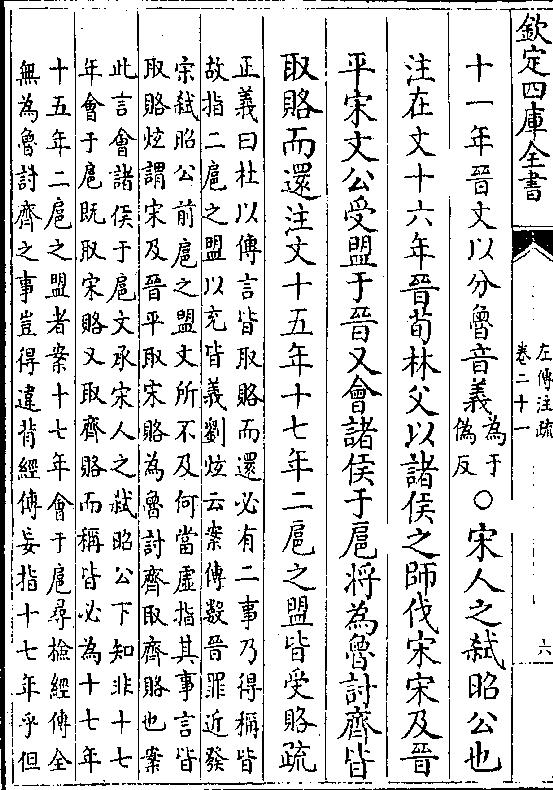 欽定四庫全書
左傳注疏
卷二十一
六
十一年晉文以分魯音義為于偽反○宋人之弑昭公也
注在文十六年晉荀林父以諸侯之師伐宋宋及晉
平宋文公受盟于晉又會諸侯于扈將為魯討齊皆
取賂而還注文十五年十七年二扈之盟皆受賂疏
正義曰杜以傳言皆取賂而還必有二事乃得稱皆
故指二扈之盟以充皆義劉炫云案傳數晉罪近發
宗弑昭公前扈之盟文所不及何當虛指其事言皆
取賂炫謂宋及晉平取宋賂為魯討齊取齊賂也案
此言會諸侯于扈文承宋人之弑昭公下知非十七
年會于扈既取宋賂又取齊賂而稱皆必為十七年
十五年二扈之盟者案十七年會于扈尋檢經傳全
無為魯討齊之事豈得違背經傳妄指十七年乎但